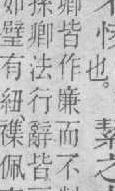 快也。素之
卿皆作廉而不
孫卿法行辭皆
如璧有紐襍佩